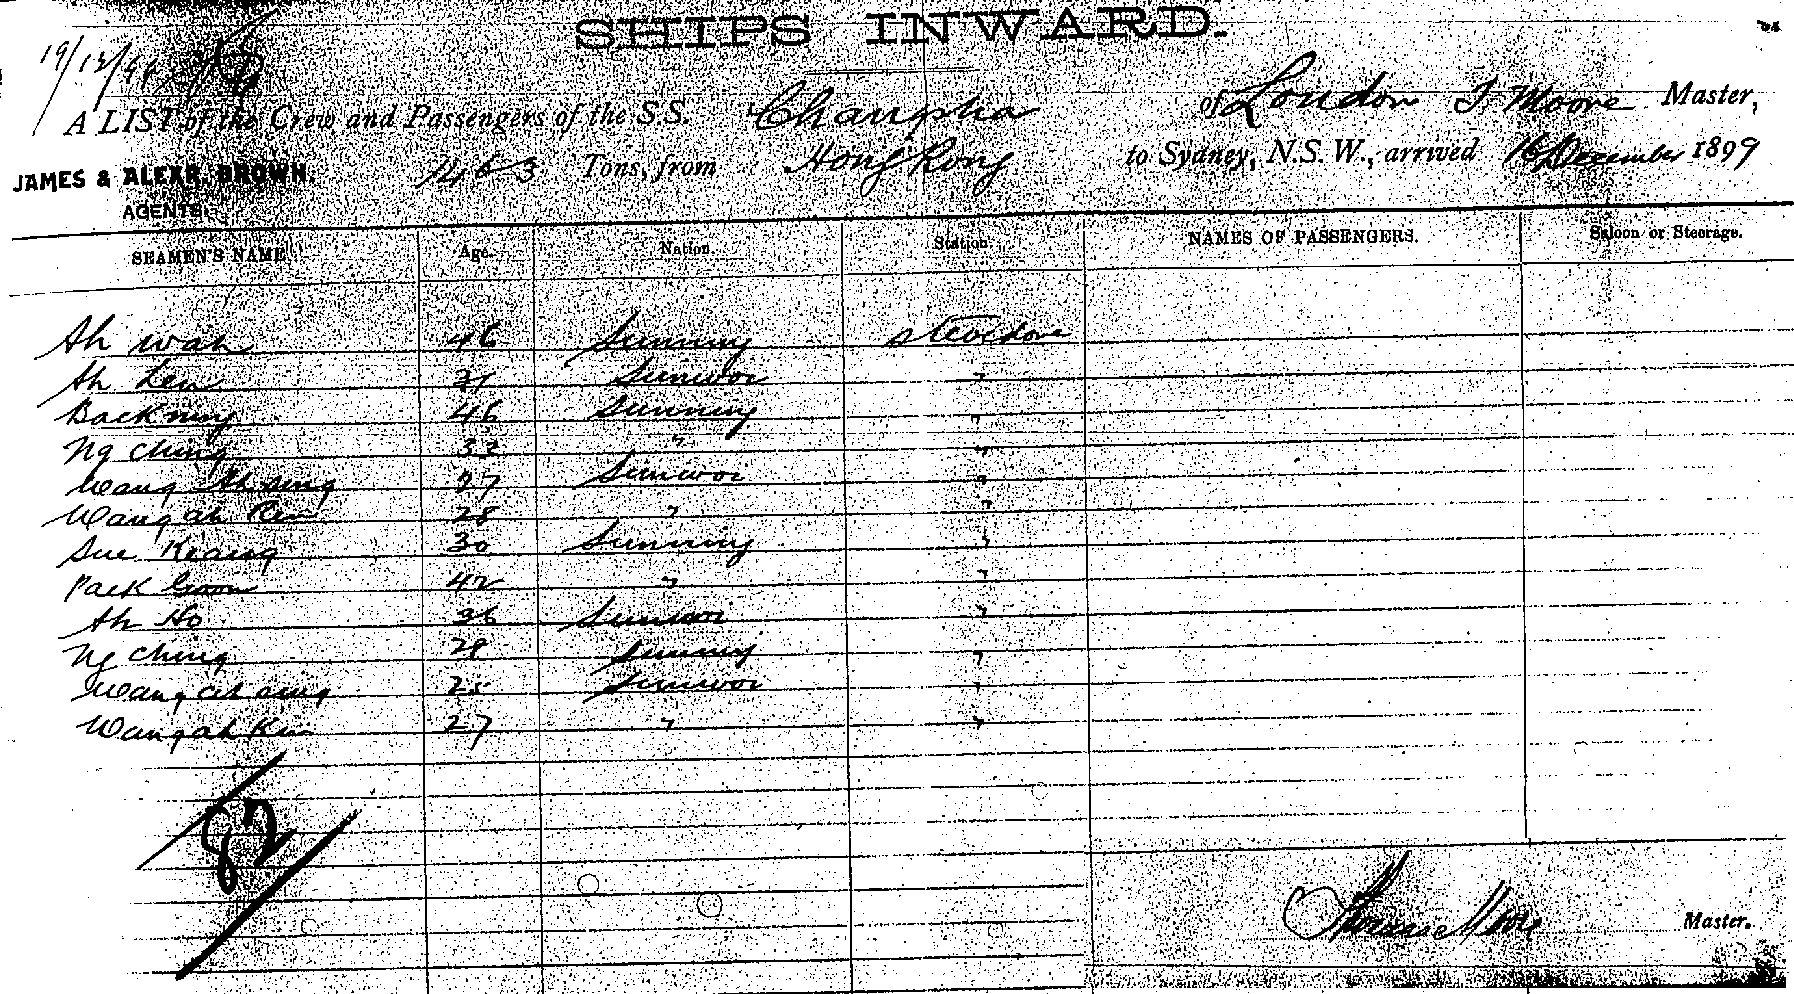 SHIPS INWARD.
19/12/99
A LIST of the Crew and Passengers of the S.S. Changsha of London T. Moore Master,
JAMES & ALEXR. BROWN, 1463 Tons, from Hong Kong to Sydney, N.S.W., arrived 16 December 1899
AGENTS.
SEAMEN'S NAME Age. Nation Station NAMES OF PASSENGERS. Saloon or Steerage.
Ah Wah 46 Sunning Stevedore
Ah Lem 31 Sunwoi "
Backning 46 Sunning "
Ng Ching 33 " "
Wang Ah sing 27 Sunwoi "
Wang ah Kim 28 " "
Sue Keang 30 Sunning "
Pack Goon 42 " "
Ah Ho 36 Sunwoi "
Ng Ching 29 Sunning "
Wang ah sing 25 Sunwoi "
Wang ah Kim 27 " "
82
Thomas Moore Master.